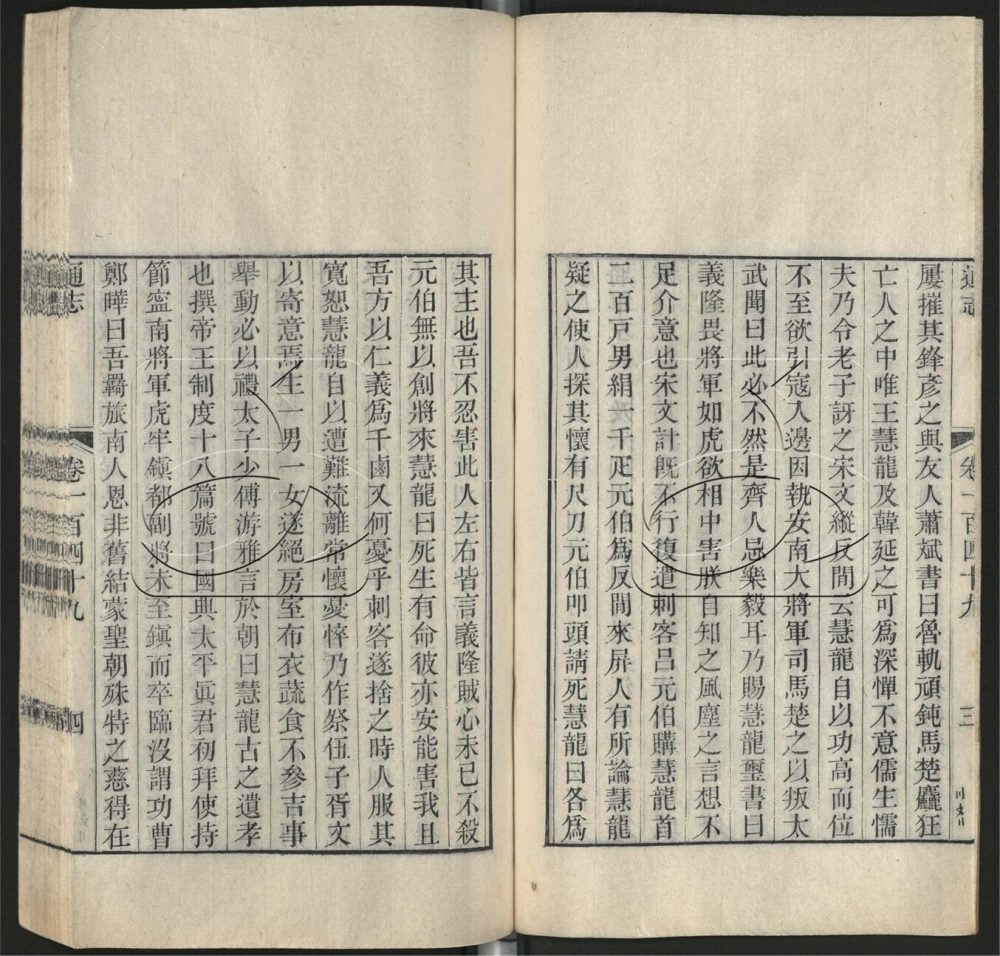 通志
卷一百四十九
三
屢摧其鋒彥之與友人蕭斌書曰魯軌頑鈍馬楚麤狂
亡人之中唯王慧龍及韓延之可爲深憚不意儒生懦
夫乃令老子訝之宋文縱反間云慧龍自以功高而位
不至欲引寇入邊因執安南大將軍司馬楚之以叛太
武聞曰此必不然是齊人忌樂毅耳乃賜慧龍璽書曰
義隆畏將軍如虎欲相中害朕自知之風塵之言想不
足介意也宋文計既不行復遣刺客呂元伯購慧龍首
二百戸男絹一千疋元伯爲反間來屏人有所論慧龍
疑之使人探其懷有尺刀元伯叩頭請死慧龍曰各爲
其主也吾不忍害此人左右皆言義隆賊心未已不殺
元伯無以創將來慧龍曰死生有命彼亦安能害我且
吾方以仁義爲干鹵又何憂乎刺客遂捨之時人服其
寬恕慧龍自以遭難流離常懷憂悴乃作祭伍子胥文
以寄意焉生一男一女遂絕房室布衣蔬食不參吉事
舉動必以禮太子少傅游雅言於朝曰慧龍古之遺孝
也撰帝王制度十八篇號曰國典太平眞君初拜使持
節寍南將軍虎牢鎭都副將未至鎭而卒臨沒謂功曹
鄭曄曰吾羈旅南人恩非舊結蒙聖朝殊特之慈得在
通志
卷一百四十九
四